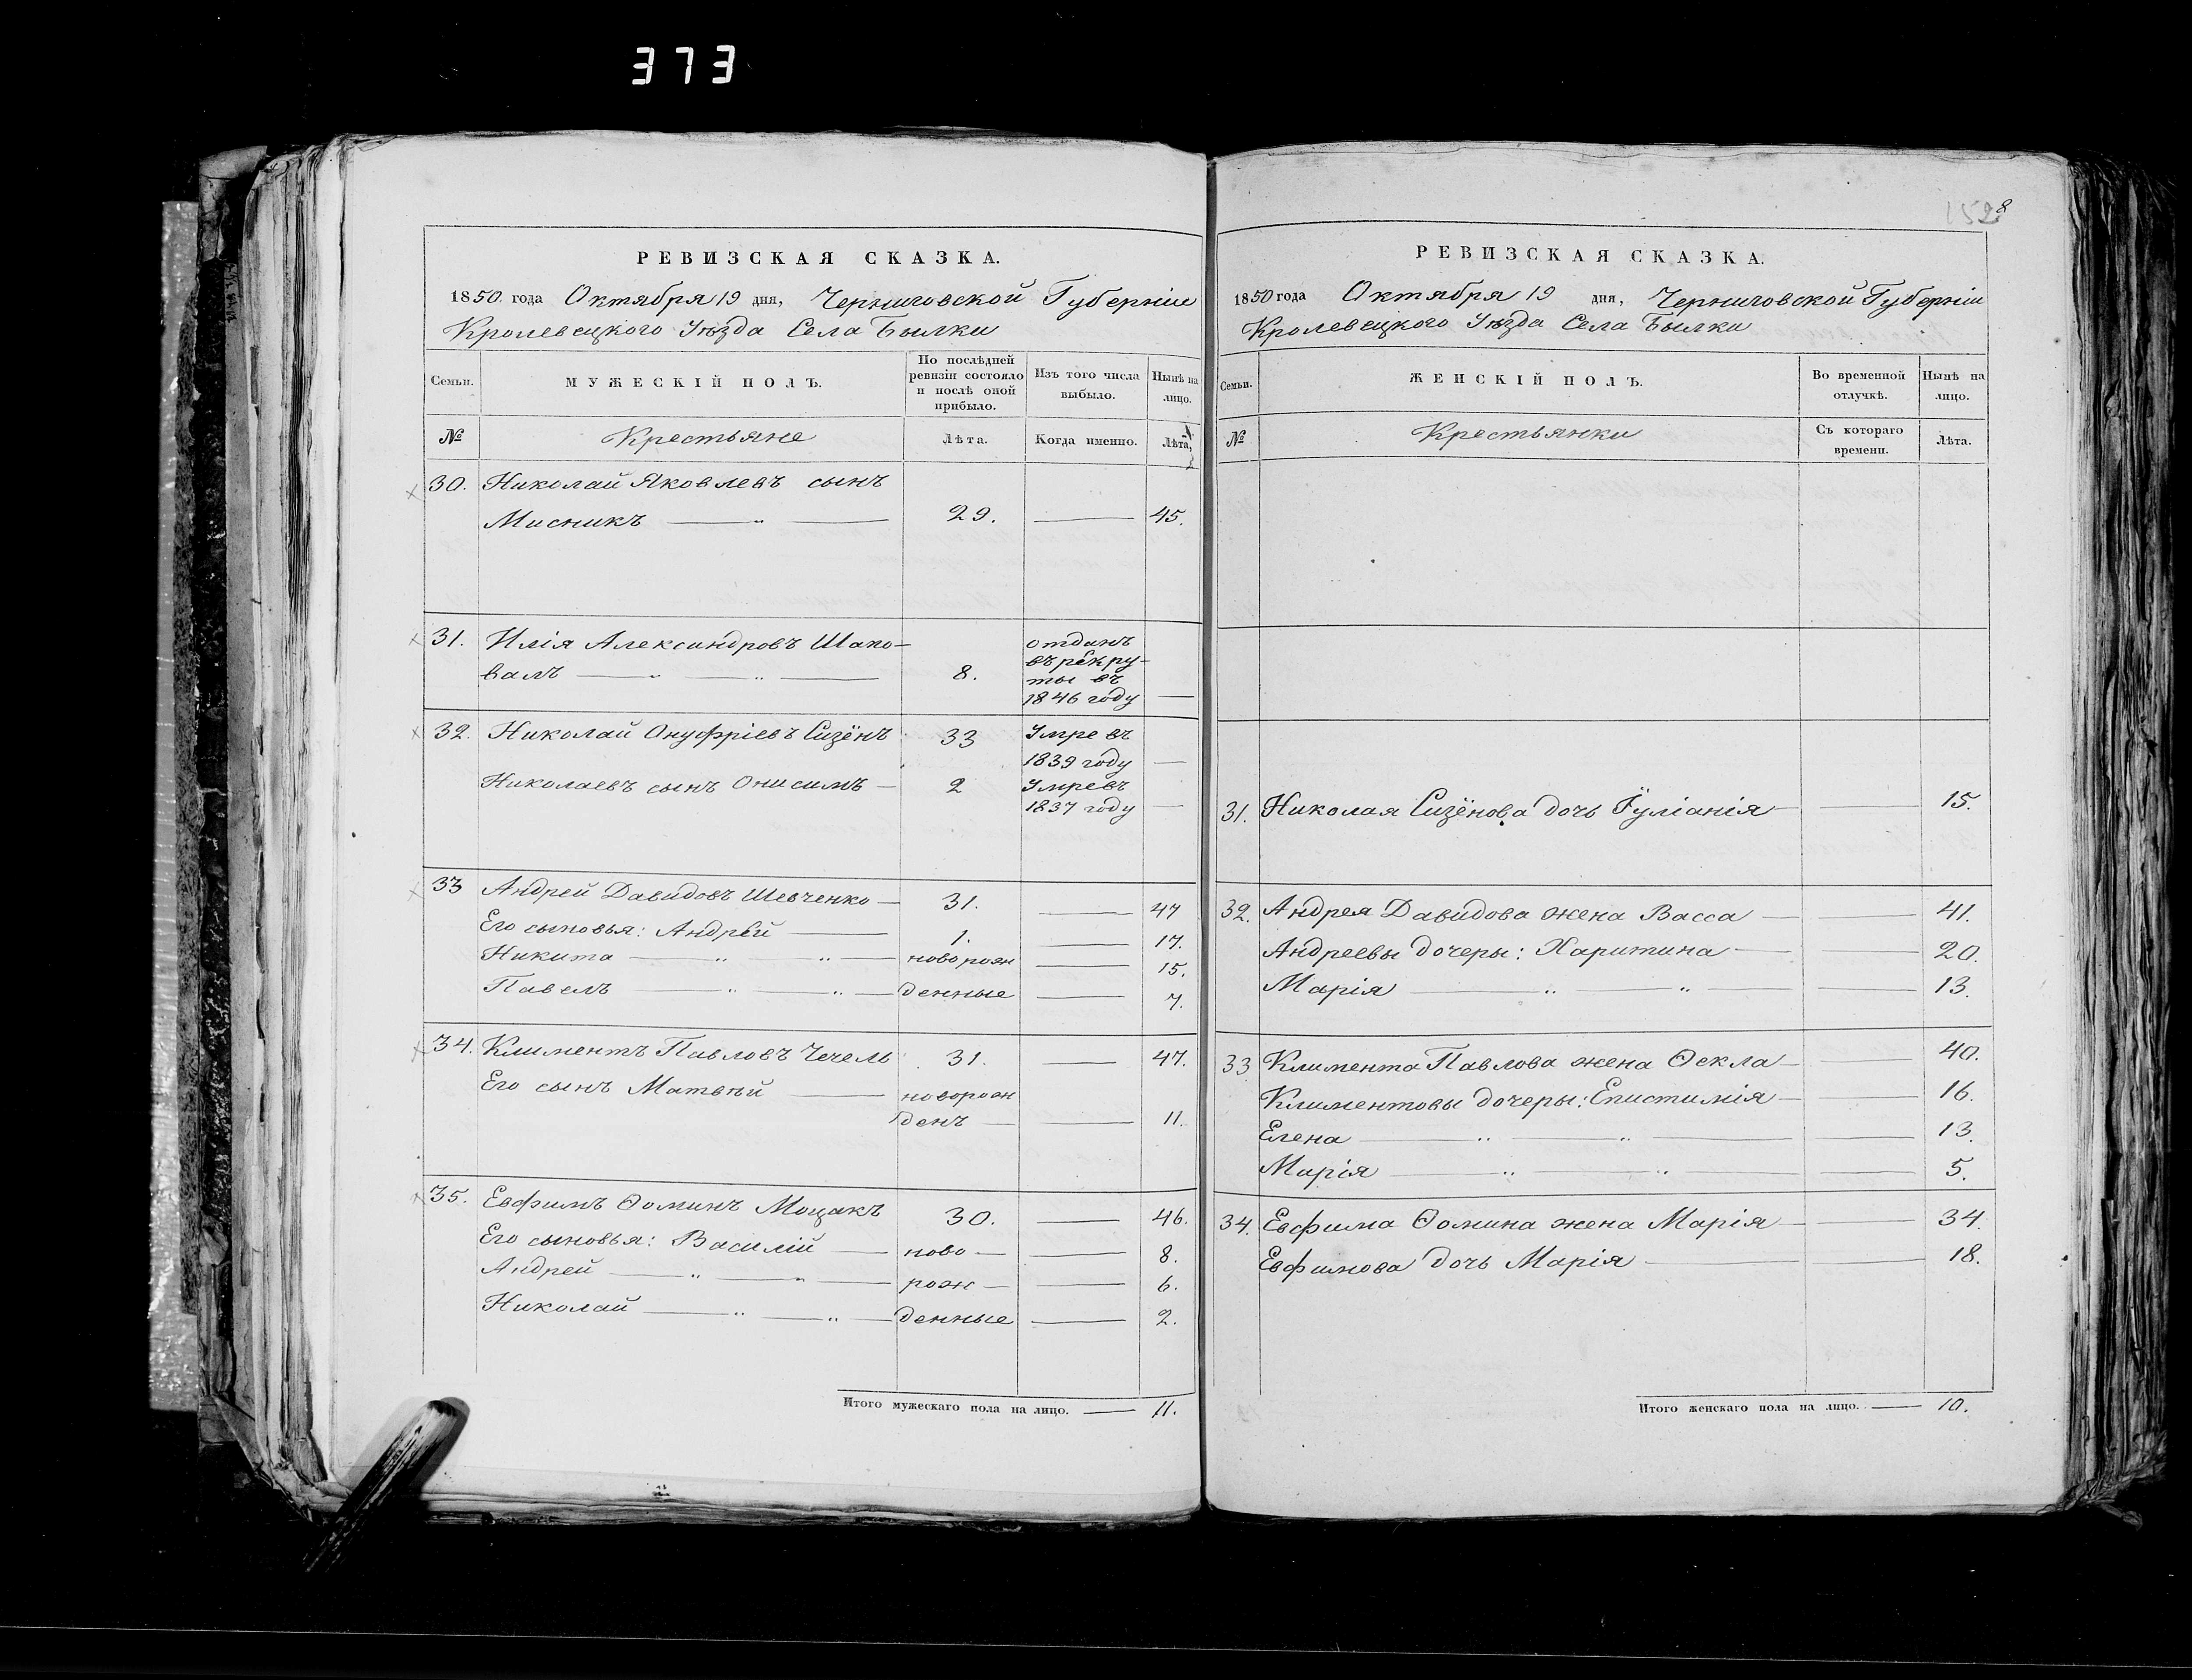 373
1528
РЕВИЗСКАЯ СКАЗКА.
1850. года Октября 19 дня, Черниговской Губерніи
Кролевецкого Уѣзда Села Былки
Семьи.
МУЖЕСКІЙ ПОЛЪ.
По послѣдней ревизіи состояло и послѣ оной прибыло.
Изъ того числа выбыло.
Нынѣ на лицо.
№
Крестьяне
Лѣта.
Когда именно.
Лѣта,
30. Николай Яковлевъ сынъ
Мисникъ — „ — 29. — 45.
31. Илія Александровъ Шапо-
валъ — „ — „ — 8.
отданъ
въ рекру-
ты въ
1846 году —
32. Николай Онуфріевъ Сизёнъ 33
Умре въ
1839 году —
Николаевъ сынъ Онисимъ — 2
Умре въ
1837 году —
33 Андрей Давидовъ Шевченко — 31. — 47
Его сыновья: Андрей — 1. — 17.
Никита — „ — „ — новорож — 15.
Павелъ — „ — „ — денные — 7.
34. Климентъ Павловъ Чечель 31. — 47.
Его сынъ Матвѣй — новорож
денъ — — 11.
35. Евфимъ Ѳоминъ Мощакъ 30. — 46.
Его сыновья: Василій — ново — — 8.
Андрей — „ — „ — рож — — 6.
Николай — „ — „ — денные — 2.
Итого мужескаго пола на лицо. — 11.
РЕВИЗСКАЯ СКАЗКА.
1850 года Октября 19 дня, Черниговской Губерніи
Кролевецкого Уѣзда Села Былки
Семьи.
ЖЕНСКІЙ ПОЛЪ.
Во временной отлучкѣ.
Нынѣ на лицо.
№
Крестьянки
Съ котораго времени.
Лѣта.
31. Николая Сизёнова дочь Іуліанія — — 15.
32. Андрея Давидова жена Васса — — 41.
Андреевы дочеры: Харитина — — 20.
Марія — „ — „ — — 13.
33 Климента Павлова жена Ѳекла — — 40.
Климентовы дочеры: Епистимія — — 16.
Елена — „ — „ — — 13.
Марія — „ — „ — — 5.
34. Евфима Ѳомина жена Марія — — 34.
Евфимова дочь Марія — — 18.
Итого женскаго пола на лицо. — 10.